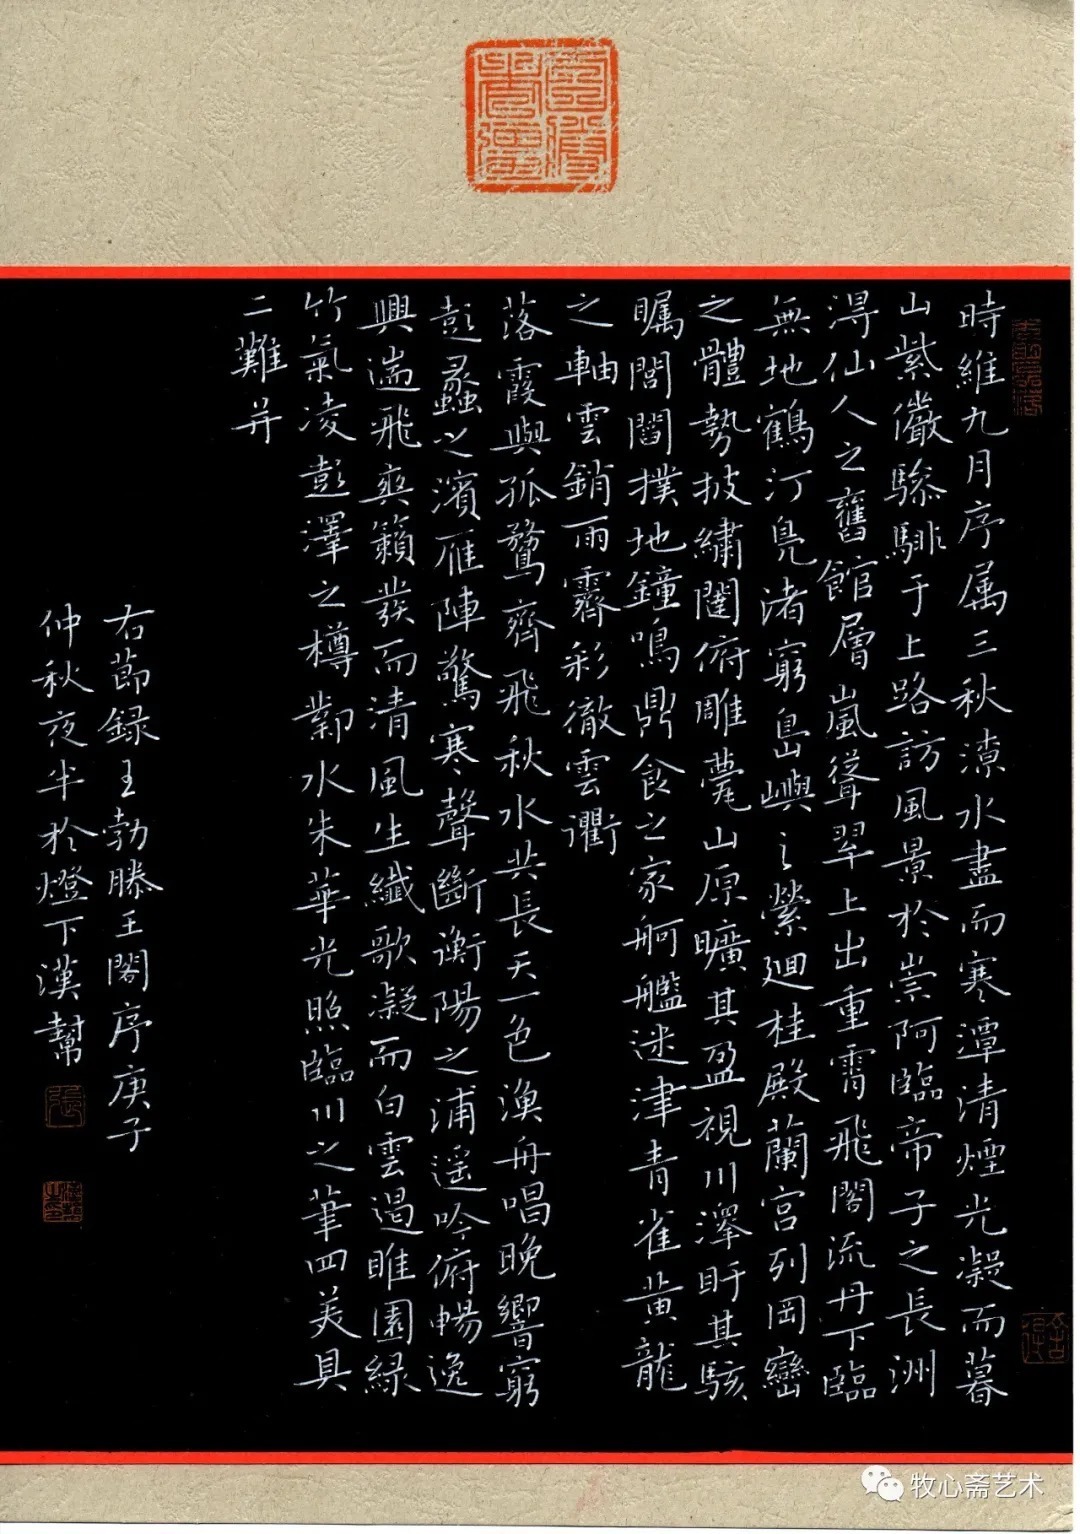 時維九月序属三秋潦水盡而寒潭清煙光凝而暮
山紫儼驂騑于上路訪風景於崇阿臨帝子之長洲
得仙人之舊館層嵐聳翠上出重霄飛閣流丹下臨
無地鶴汀凫渚窮島嶼之縈廻桂殿蘭宮列岡巒
之體勢披繡闥俯雕甍山原曠其盈視川澤盱其駭
矚閭閻撲地鐘鳴鼎食之家舸艦迷津青雀黃龍
之軸雲銷雨霽彩徹雲衢
落霞與孤鶩齊飛秋水共長天一色漁舟唱晚響窮
彭蠡之濱雁陣驚寒聲斷衡陽之浦遥吟俯暢逸
興遄飛爽籟發而清風生纖歌凝而白雲遏睢園緑
竹氣凌彭澤之樽鄴水朱華光照臨川之筆四美具
二難并
右節録王勃滕王閣序庚子
仲秋夜半於燈下漢幫
張
牧心斋艺术